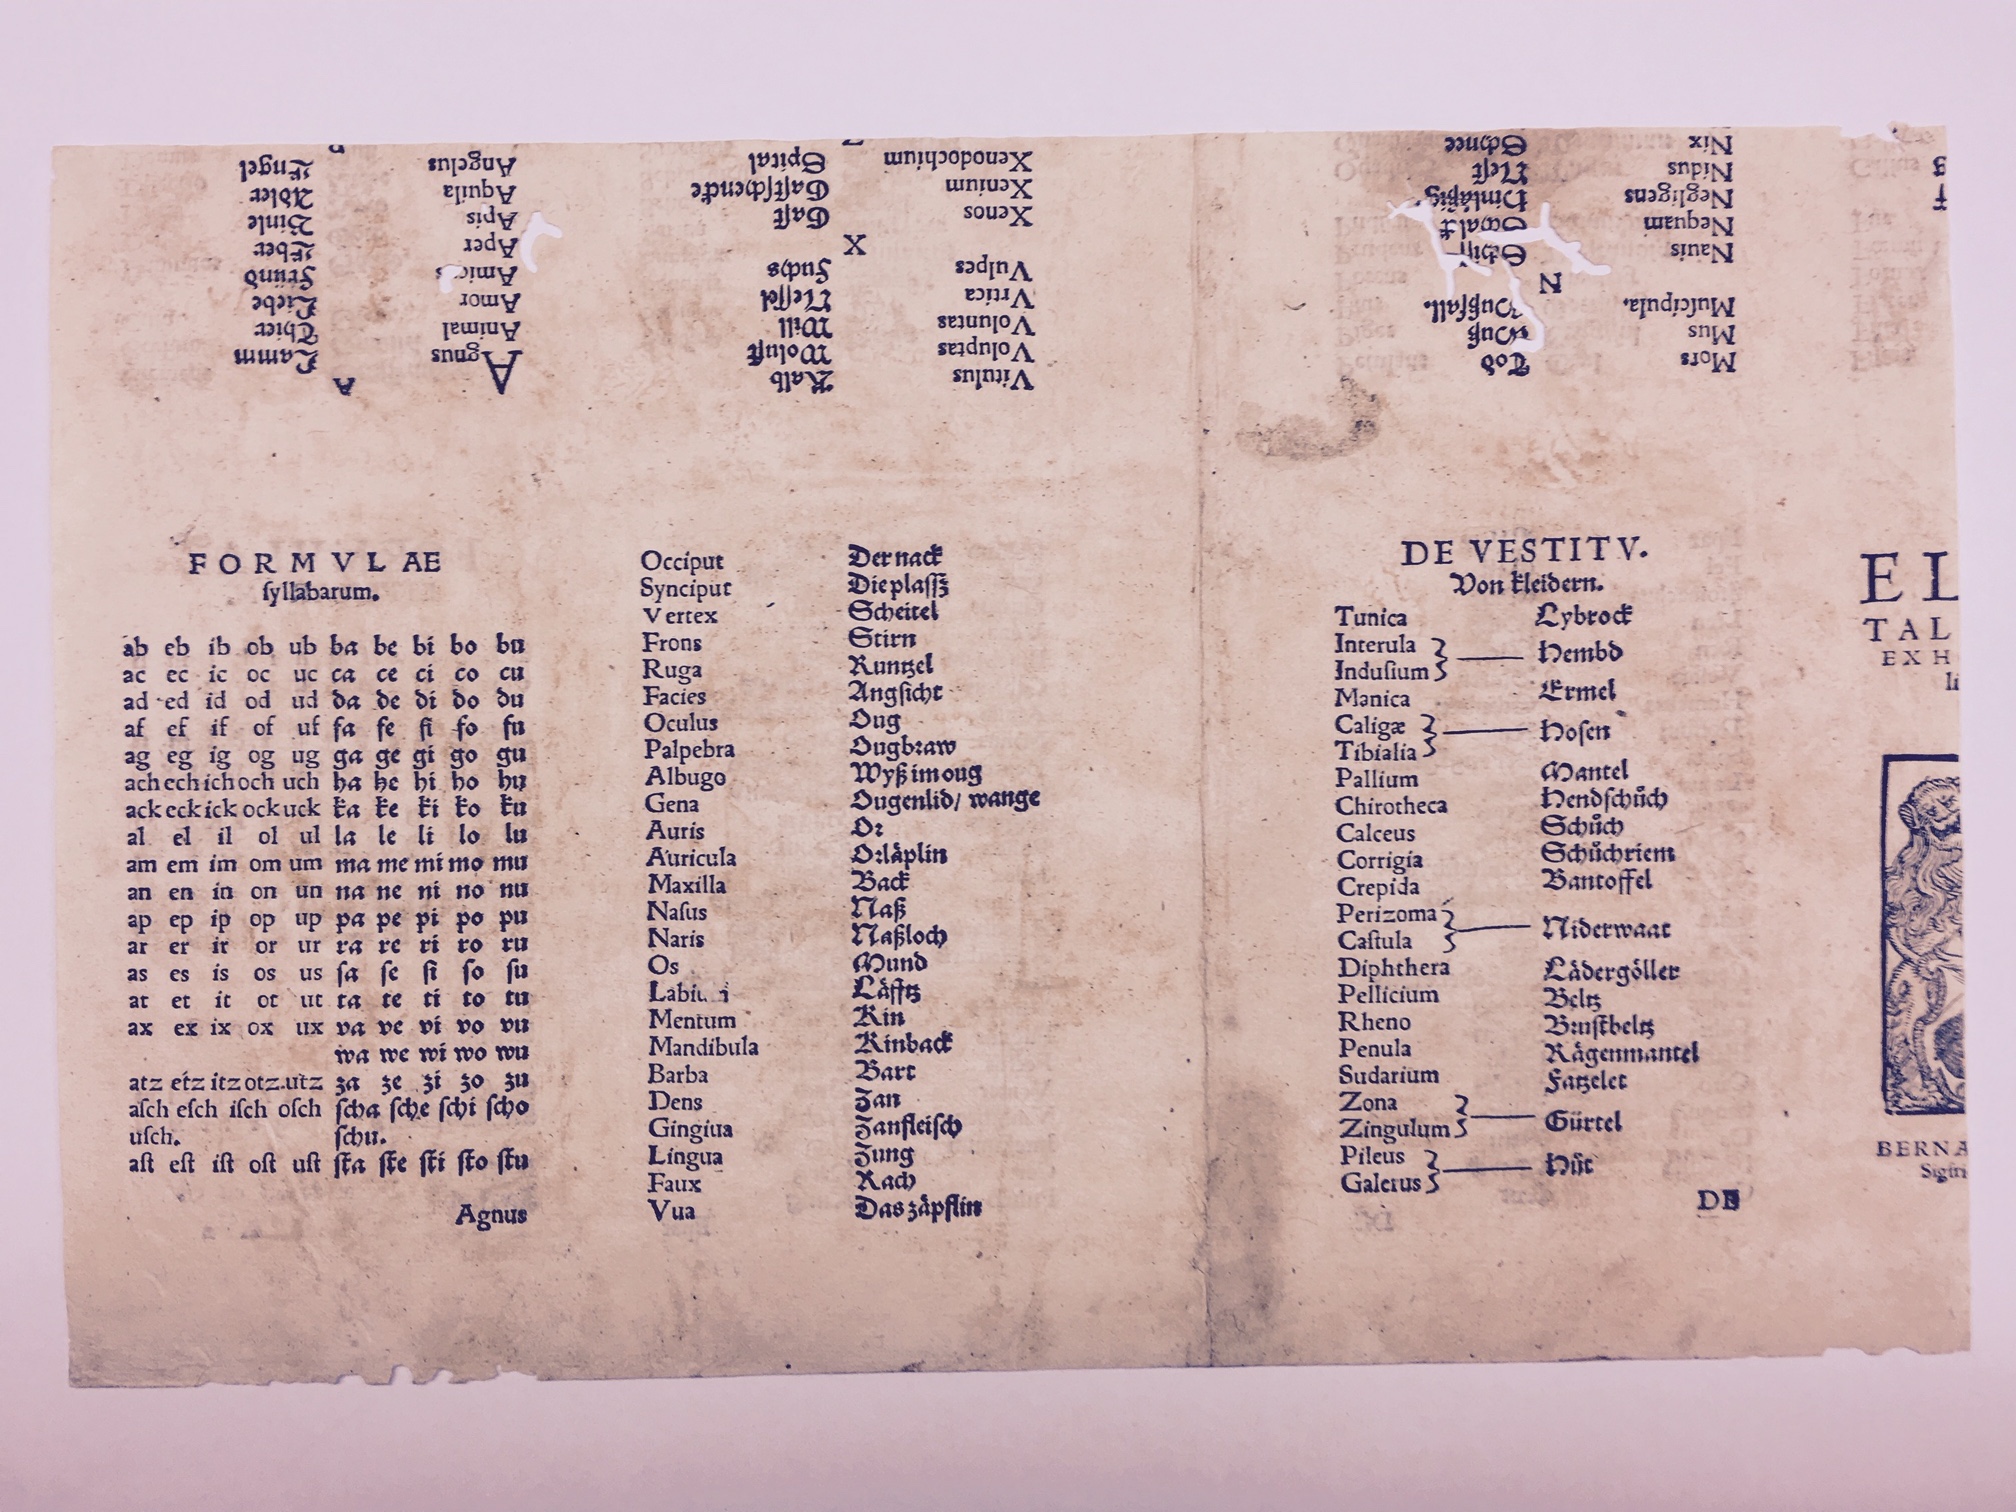 FORMVLAE
ſyllabarum.
ab eb ib ob ub ba be bi bo bu
ac ec ic oc uc ca ce ci co cu
ad ed id od ud da de di do du
af ef if of uf fa fe fi fo fu
ag eg ig og ug ga ge gi go gu
ach ech ich och uch ha he hi ho hu
ack eck ick ock uck ka ke ki ko ku
al el il ol ul la le li lo lu
am em im om um ma me mi mo mu
an en in on un na ne ni no nu
ap ep ip op up pa pe pi po pu
ar er ir or ur ra re ri ro ru
as es is os us ſa ſe ſi ſo ſu
at et it ot ut ta te ti to tu
ax ex ix ox ux va ve vi vo vu
wa we wi wo wu
atz etz itz otz.utz za ze zi zo zu
aſch eſch iſch oſch ſcha ſche ſchi ſcho
uſch. ſchu.
aſt eſt iſt oſt uſt ſta ſte ſti ſto ſtu
Agnus
Occiput Der nack
Synciput Die plaſſz
Vertex Scheitel
Frons Stirn
Ruga Runtzel
Facies Angſicht
Oculus Oug
Palpebra Ougbraw
Albugo Wyß im oug
Gena Ougenlid/ wange
Auris Or
Auricula Orläplin
Maxilla Back
Naſus Naß
Naris Naßloch
Os Mund
Läfftz
Mentum Kin
Mandibula Kinback
Barba Bart
Dens Zan
Gingiua Zanfleiſch
Lingua Zung
Faux Rach
Vua Das zäpflin
DE VESTITV.
Von kleidern.
Tunica Lybrock
Interula
Induſium Hembd
Manica Ermel
Caligæ
Tibialia Hoſen
Pallium Mantel
Chirotheca Hendſchůch
Calceus Schůch
Corrigia Schůchriem
Crepida Bantoffel
Perizoma
Caſtula Niderwaat
Diphthera Lädergöller
Pellicium Beltz
Rheno Bruſtbeltz
Penula Rägenmantel
Sudarium Fatzelet
Zona
Zingulum Gürtel
Pileus
Galerus Hůt
DE
EL
TAL
EX H
li
BERNA
A
Agnus Lamm
Animal Thier
Amor Liebe
Fründ
Aper Eber
Apis Binle
Aquila Adler
Angelus Engel
Vitulus Kalb
Voluptas Woluſt
Voluntas Will
Vrtica Neſſel
Vulpes Fuchs
X
Xenos Gaſt
Xenium Gaſtſchencke
Xenodochium Spital
Mors Tod
Mus Muß
Muſcipula. Mußfall.
N
Nauis Schiff
Nequam
Negligens Hinläßig
Nidus Neſt
Nix Schnee